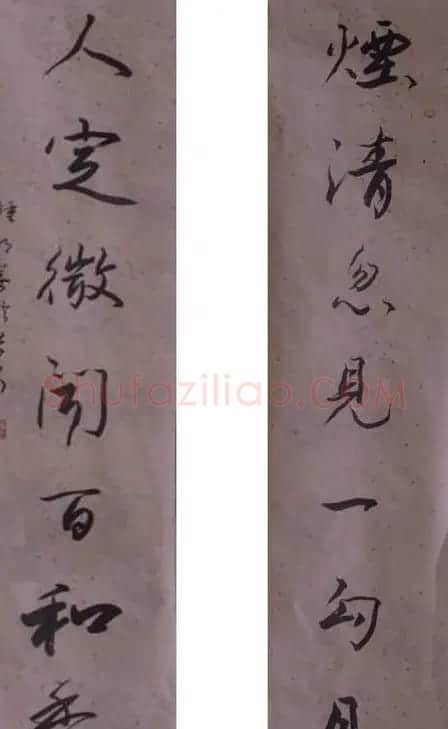 煙清忽見一勾月
人定微聞百和香
Shufaziliao.COM